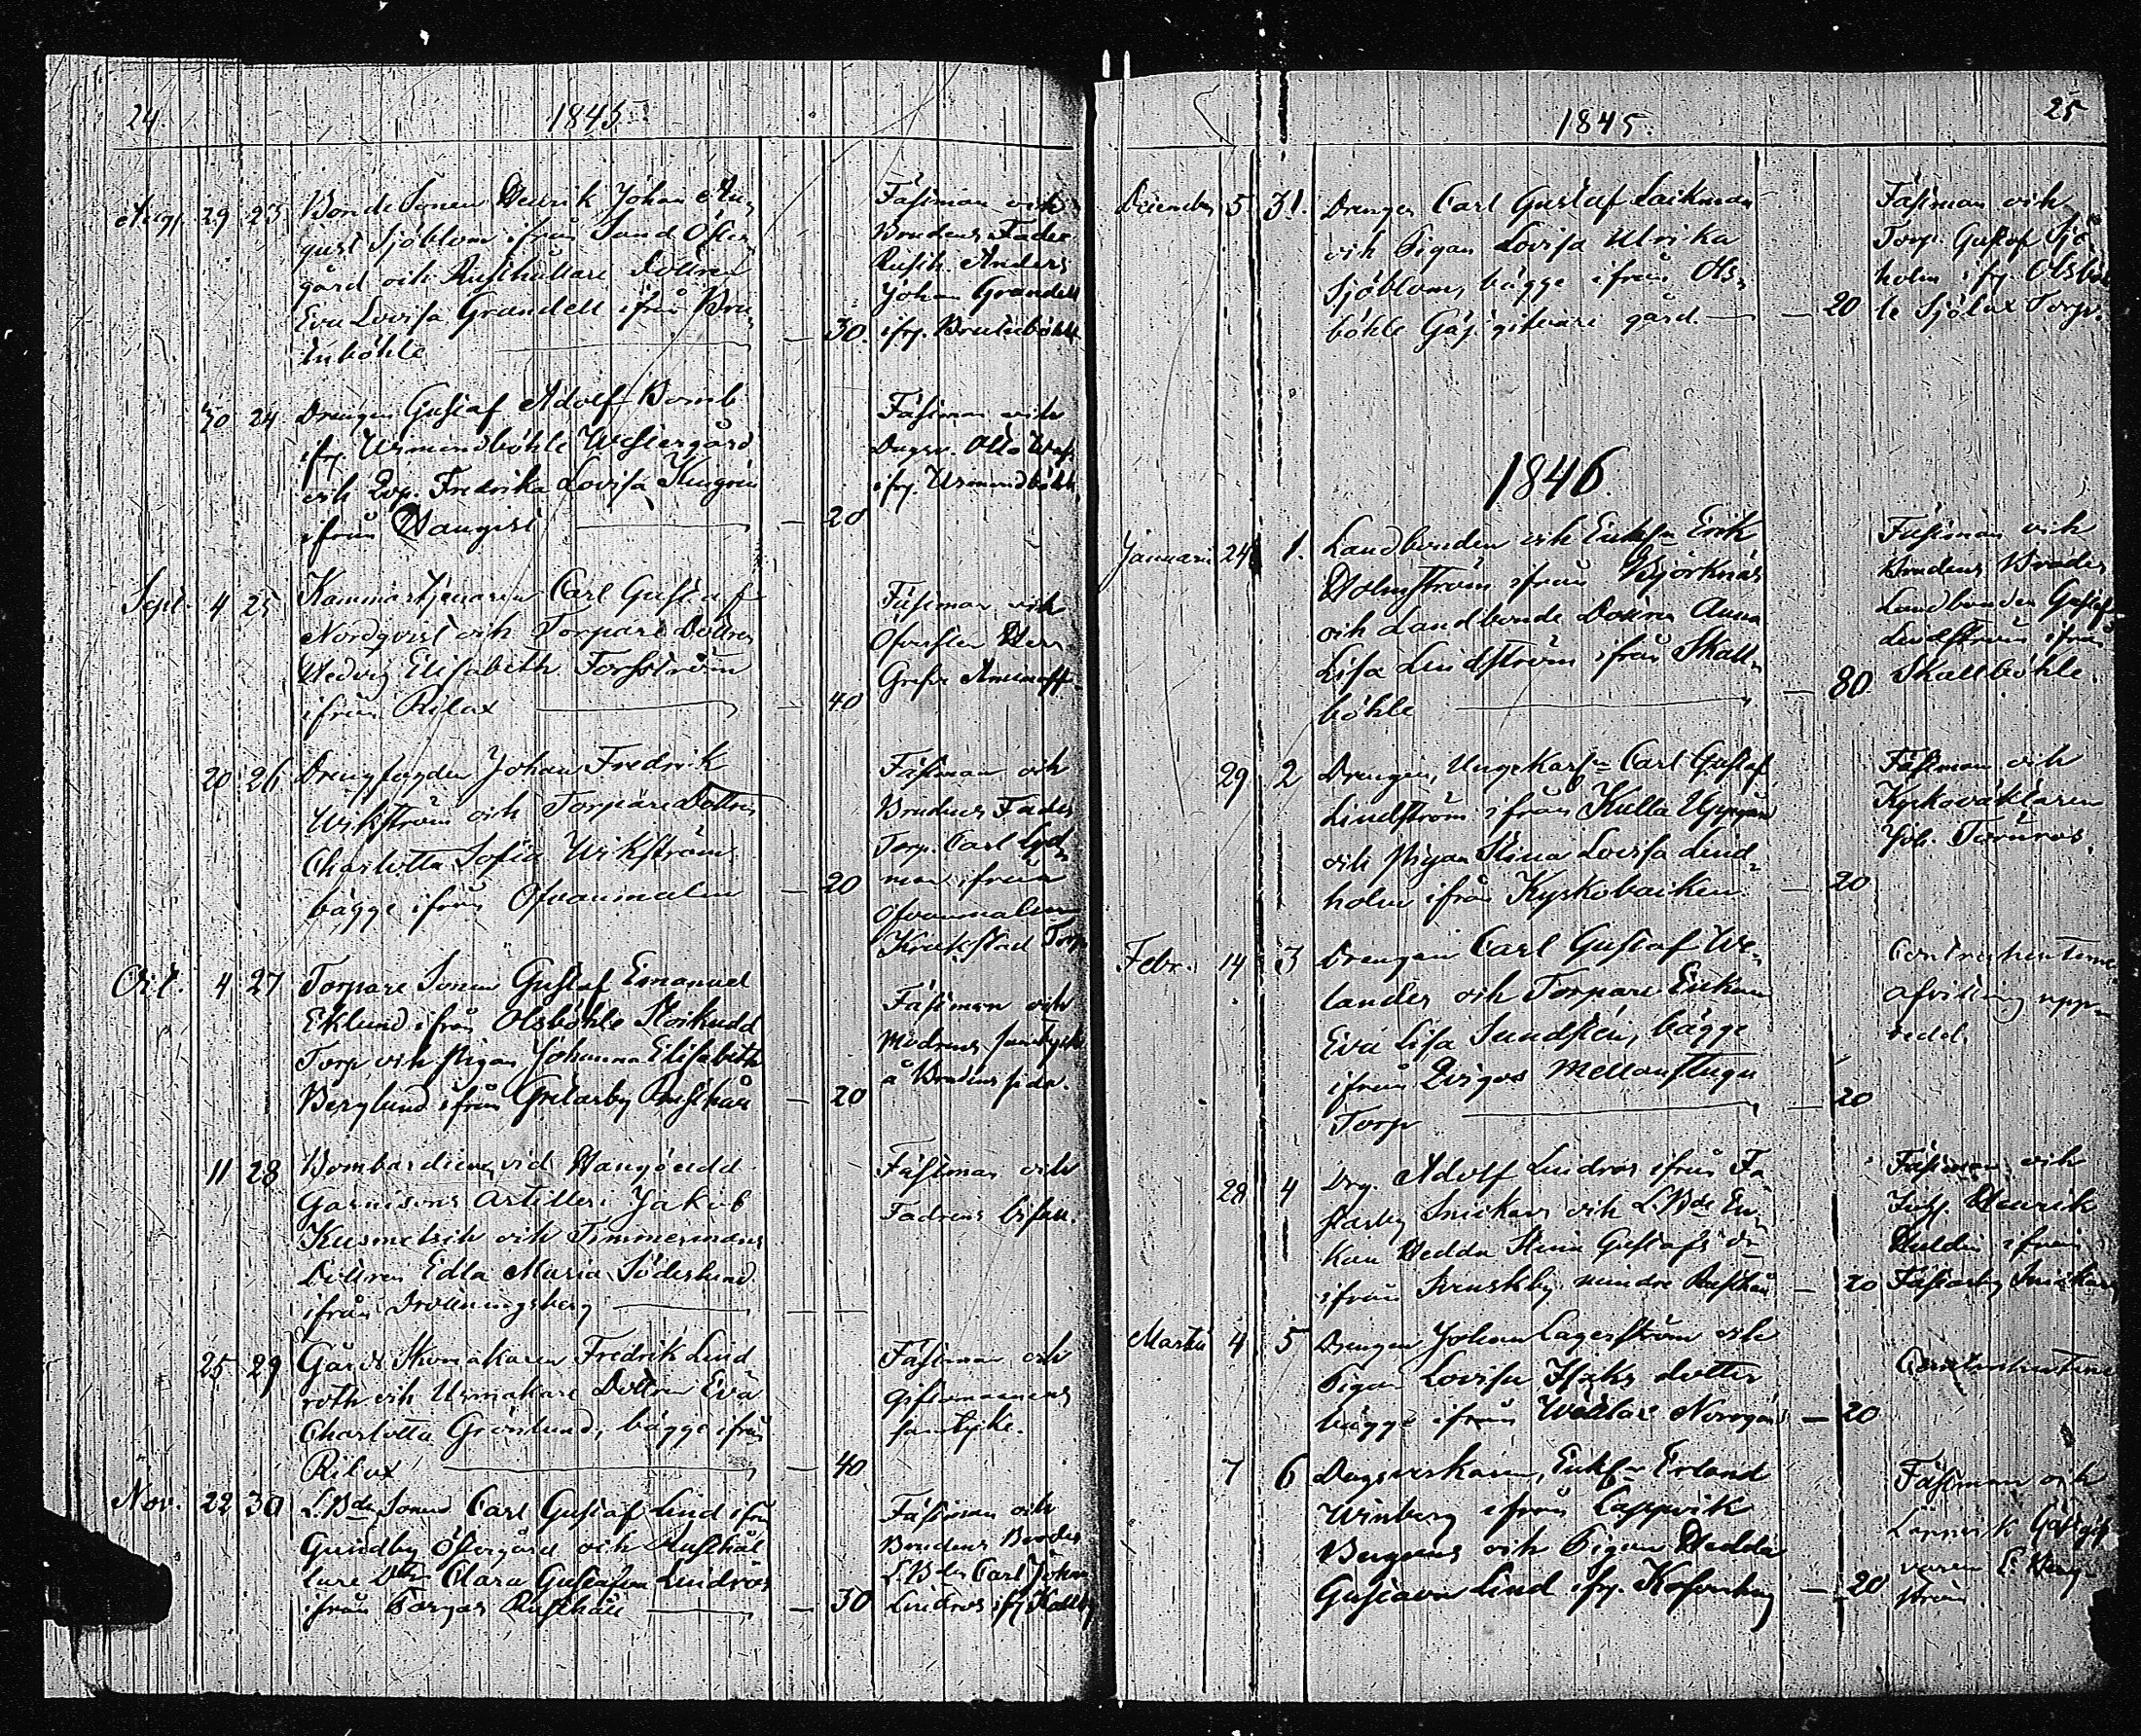 24.
1845
Augs. 29 23 Bonde Sonen Henrik Johan Au-
gust Sjöblom ifrån Sand Öfver-
gård och Rusthållare Dottren
Eva Lovisa Grandell ifrån
böhle — 30.
Fästman och
Brudens Fader
Rusth. Anders
Johan Grandell
ifr.
30 24 Drengen Gustaf Adolf Bomb
ifr. Westergård
och Qvp. Fredrika Lovisa
ifrån — 20
Fästman och
Dagsv. Otto
ifr.
Sept. 4 25 Kammartjenaren Carl Gustaf
Nordqvist och Torpare Dottren
Hedvig Elisabeth Forsström
ifrån Rilax — 40
Fästman och
Öfversten Herr
Grefve Armfelt
20 26 Drengfogden Johan Fredrik
Wikström och Torpare Dottren
Charlotta Sofia Wikström
bägge ifrån Ofvanmalm — 20
Fästman och
Brudens Fader
Torp. Carl
man ifrån
Ofvanmalm
Torp
Oct. 4 27 Torpare Sonen Gustaf Emanuel
Eklund ifrån Olsböhle Storkudd
Torp och pigan Johanna Elisabeth
Berglund ifrån Gretarby Rusthåll — 20
Fästman och
Modrens samtycke
å Brudens sida.
11 28 Bombardieren vid Hangöudd
Garnisons Artilleri Jakob
Kusmetsich och Timmermans
Dottren Edla Maria Söderlund
ifrån Drottningsberg — —
Fästman och
Fadrens bifall.
25 29 Gårds Skomakaren Fredrik Lind
roth och Urmakare Dottren Eva
Charlotta Grönlund, bägge ifrån
Rilax — 40
Fästman och
giftomannens
samtycke.
Nov. 22 30 L.Bde Sonen Carl Gustaf Lind ifrån
Gundby Östergård och Rusthål
lare Dtr Clara Gustafva Lindros
ifrån Rusthåll — 30
Fästman och
Brudens Broder
L.Bden Carl Johan
Lindros ifr.
25
1845.
December 5 31. Drengen Carl Gustaf Laikman
och Pigan Lovisa Ulrika
Sjöblom, bägge ifrån Ols-
böhle Gästgifveri gård. — 20
Fästman och
Torp. Gustaf Sjö-
holm ifr. Olsböh
le Sjölax Torp.
1846.
Januari 24 1. Landbonden och Enkln Erik
Holmström ifrån Björknäs
och Landbonde Dottren Anna
Lisa Lindström ifrån Skall-
böhle — 80
Fästman och
Brudens Broder
Landbonden Gustaf
Lindström ifrån
Skallböhle.
29 2 Drengen, Ungekarln Carl Gustaf
Lindström ifrån Kulla
och pigan Stina Lovisa Lind-
holm ifrån Kyrkobacken — 20
Fästman och
Kyrkoväktaren
Joh. Törnros.
Febr. 14 3 Drengen Carl Gustaf We-
lander och Torpare Enkan
Eva Lisa Sundstén, bägge
ifrån Mellanstugu
Torp — 20
Contrahenterne
Afvittring upp-
vedel.
28 4 Drg. Adolf Lindros ifrån Fa-
starby Snickars och L.Bde En-
kan Hedda Stina Gustafs dr
ifrån Svenskby mindre Rusthåll — 20
Fästman och
Henrik
Huldin ifrån
Fastarby Snickars
Martii 4 5 Drengen Johan Lagerström och
Pigan Lovisa Isaks dotter
bägge ifrån Norrgård — 20
Contrahenterne
7 6 Dagsverskarn, Enkln Erland
Winberg ifrån Lappvik
och Pigan Hedda
Gustava Lind ifr. — 20
Fästman och
Lappvik Gästgif
varen C. Berg-
ström.